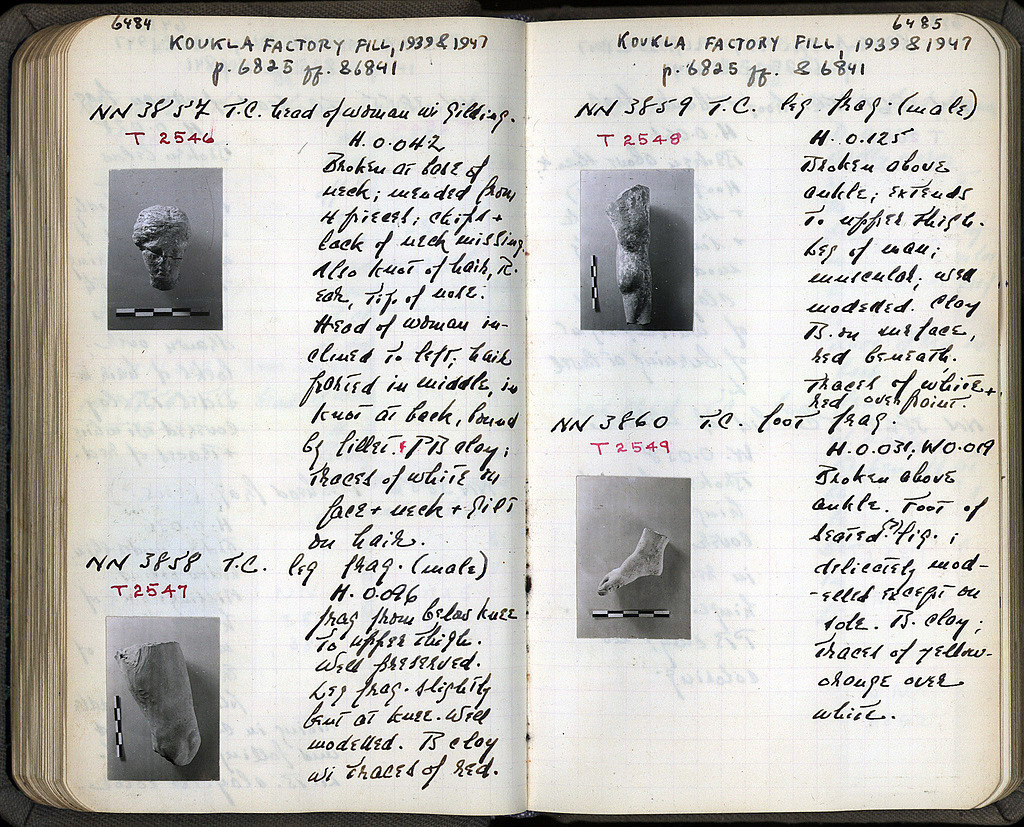 6484
KOUKLA FACTORY FILL, 1939 & 1947
p. 6825 ff. & 6841
NN 3857 T.C. head of woman wi gilding.
T 2546
H. 0.042
Broken at base of
neck; mended from
4 pieces; chips +
back of neck missing.
Also knot of hair, R.
ear, tip of nose.
Head of woman in-
clined to left; hair
parted in middle, in
knot at back, bound
by fillet. PB clay;
traces of white on
face + neck + gilt
on hair.
NN 3858 T.C. leg frag. (male)
T 2547
H. 0.096
frag from below knee
to upper thigh.
Well preserved.
Leg frag. slightly
bent at knee. Well
modelled. B clay
wi traces of red.
6485
KOUKLA FACTORY FILL, 1939 & 1947
p. 6825 ff. & 6841
NN 3859 T.C. leg frag. (male)
T 2548
H. 0.125
Broken above
ankle; extends
to upper thigh.
Leg of man;
muscular; well
modelled. Clay
B. on surface,
red beneath.
Traces of white +
red over paint.
NN 3860 T.C. foot frag.
T 2549
H. 0.031, W 0.019
Broken above
ankle. Foot of
seated (?) fig.;
delicately mod-
-elled except on
sole. B. clay;
traces of yellow-
orange over
white.